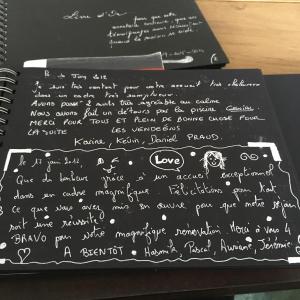 Livre d'Or
pour que cette
aventure continue, que vos
témoignages nous réchauffent
quand la saison se vide.
Juin 2012
Je suis très content pour votre accueil très chaleureux
dans un cadre très somptueux.
Avons passé 2 nuits très agréable au calme
Nous avons fait un détours par la piscine Géniale.
MERCI POUR TOUS ET PLEIN DE BONNE CHOSE POUR
LA SUITE LES VENDEENS
Karine, Kévin, Daniel PRAUD.
Le 17 juin 2012
Love
Que du bonheur grâce à un accueil exceptionnel
dans un cadre magnifique. Félicitations pour tout
ce que vous avez mis en œuvre pour que notre séjour
soit une réussite
BRAVO pour votre magnifique rénovation. Merci à vous 4
A BIENTÔT. Pascal, Auréane, Jérémie.